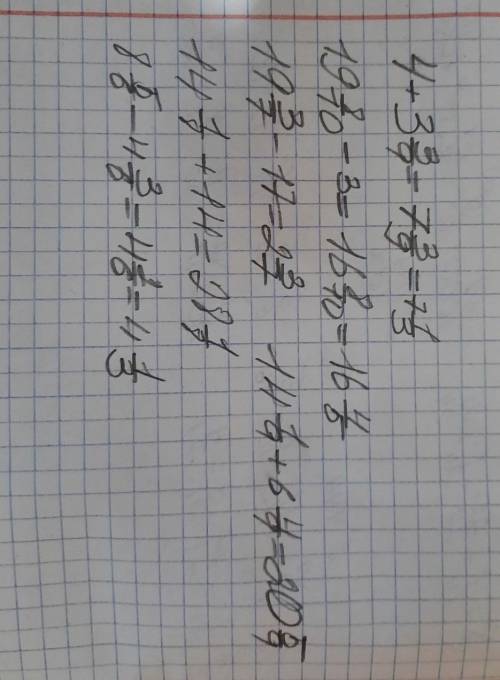 4+3 3/9=7 3/9=7 1/3
19 8/10-3=16 8/10=16 4/5
19 3/7-17=2 3/7 14 1/9+6 4/9=20 5/9
14 +14=28
8 5/6-4 3/6=4 2/6=4 1/3